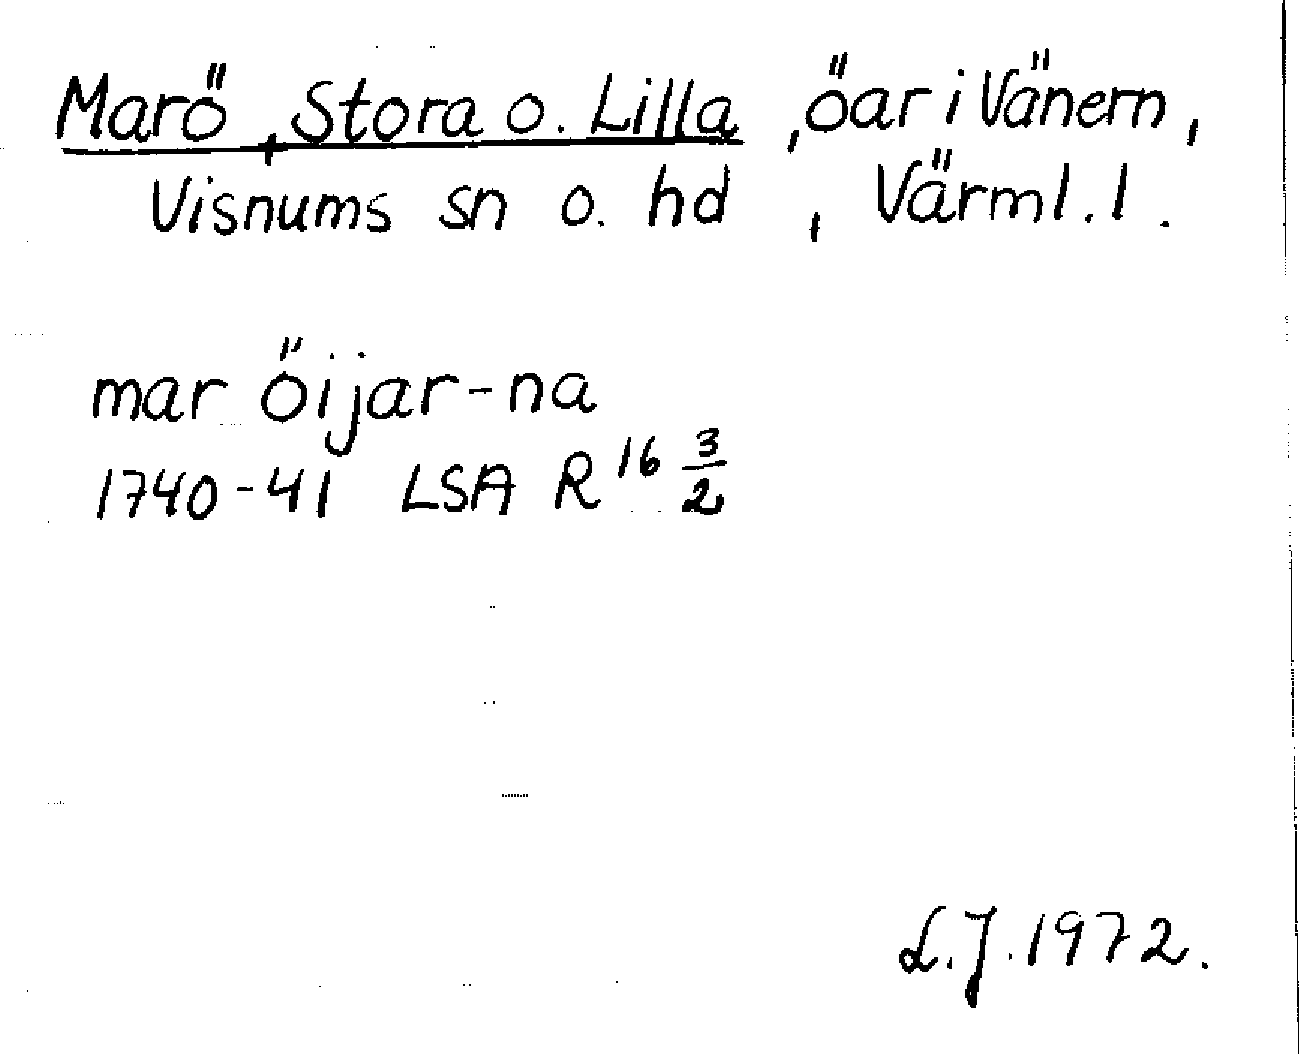 Marö, Stora o. Lilla, öar i Vänern,
Visnums sn o. hd, Värml. l.
mar öijar-na
1740-41 LSA R 16 3/2
L.J. 1972.